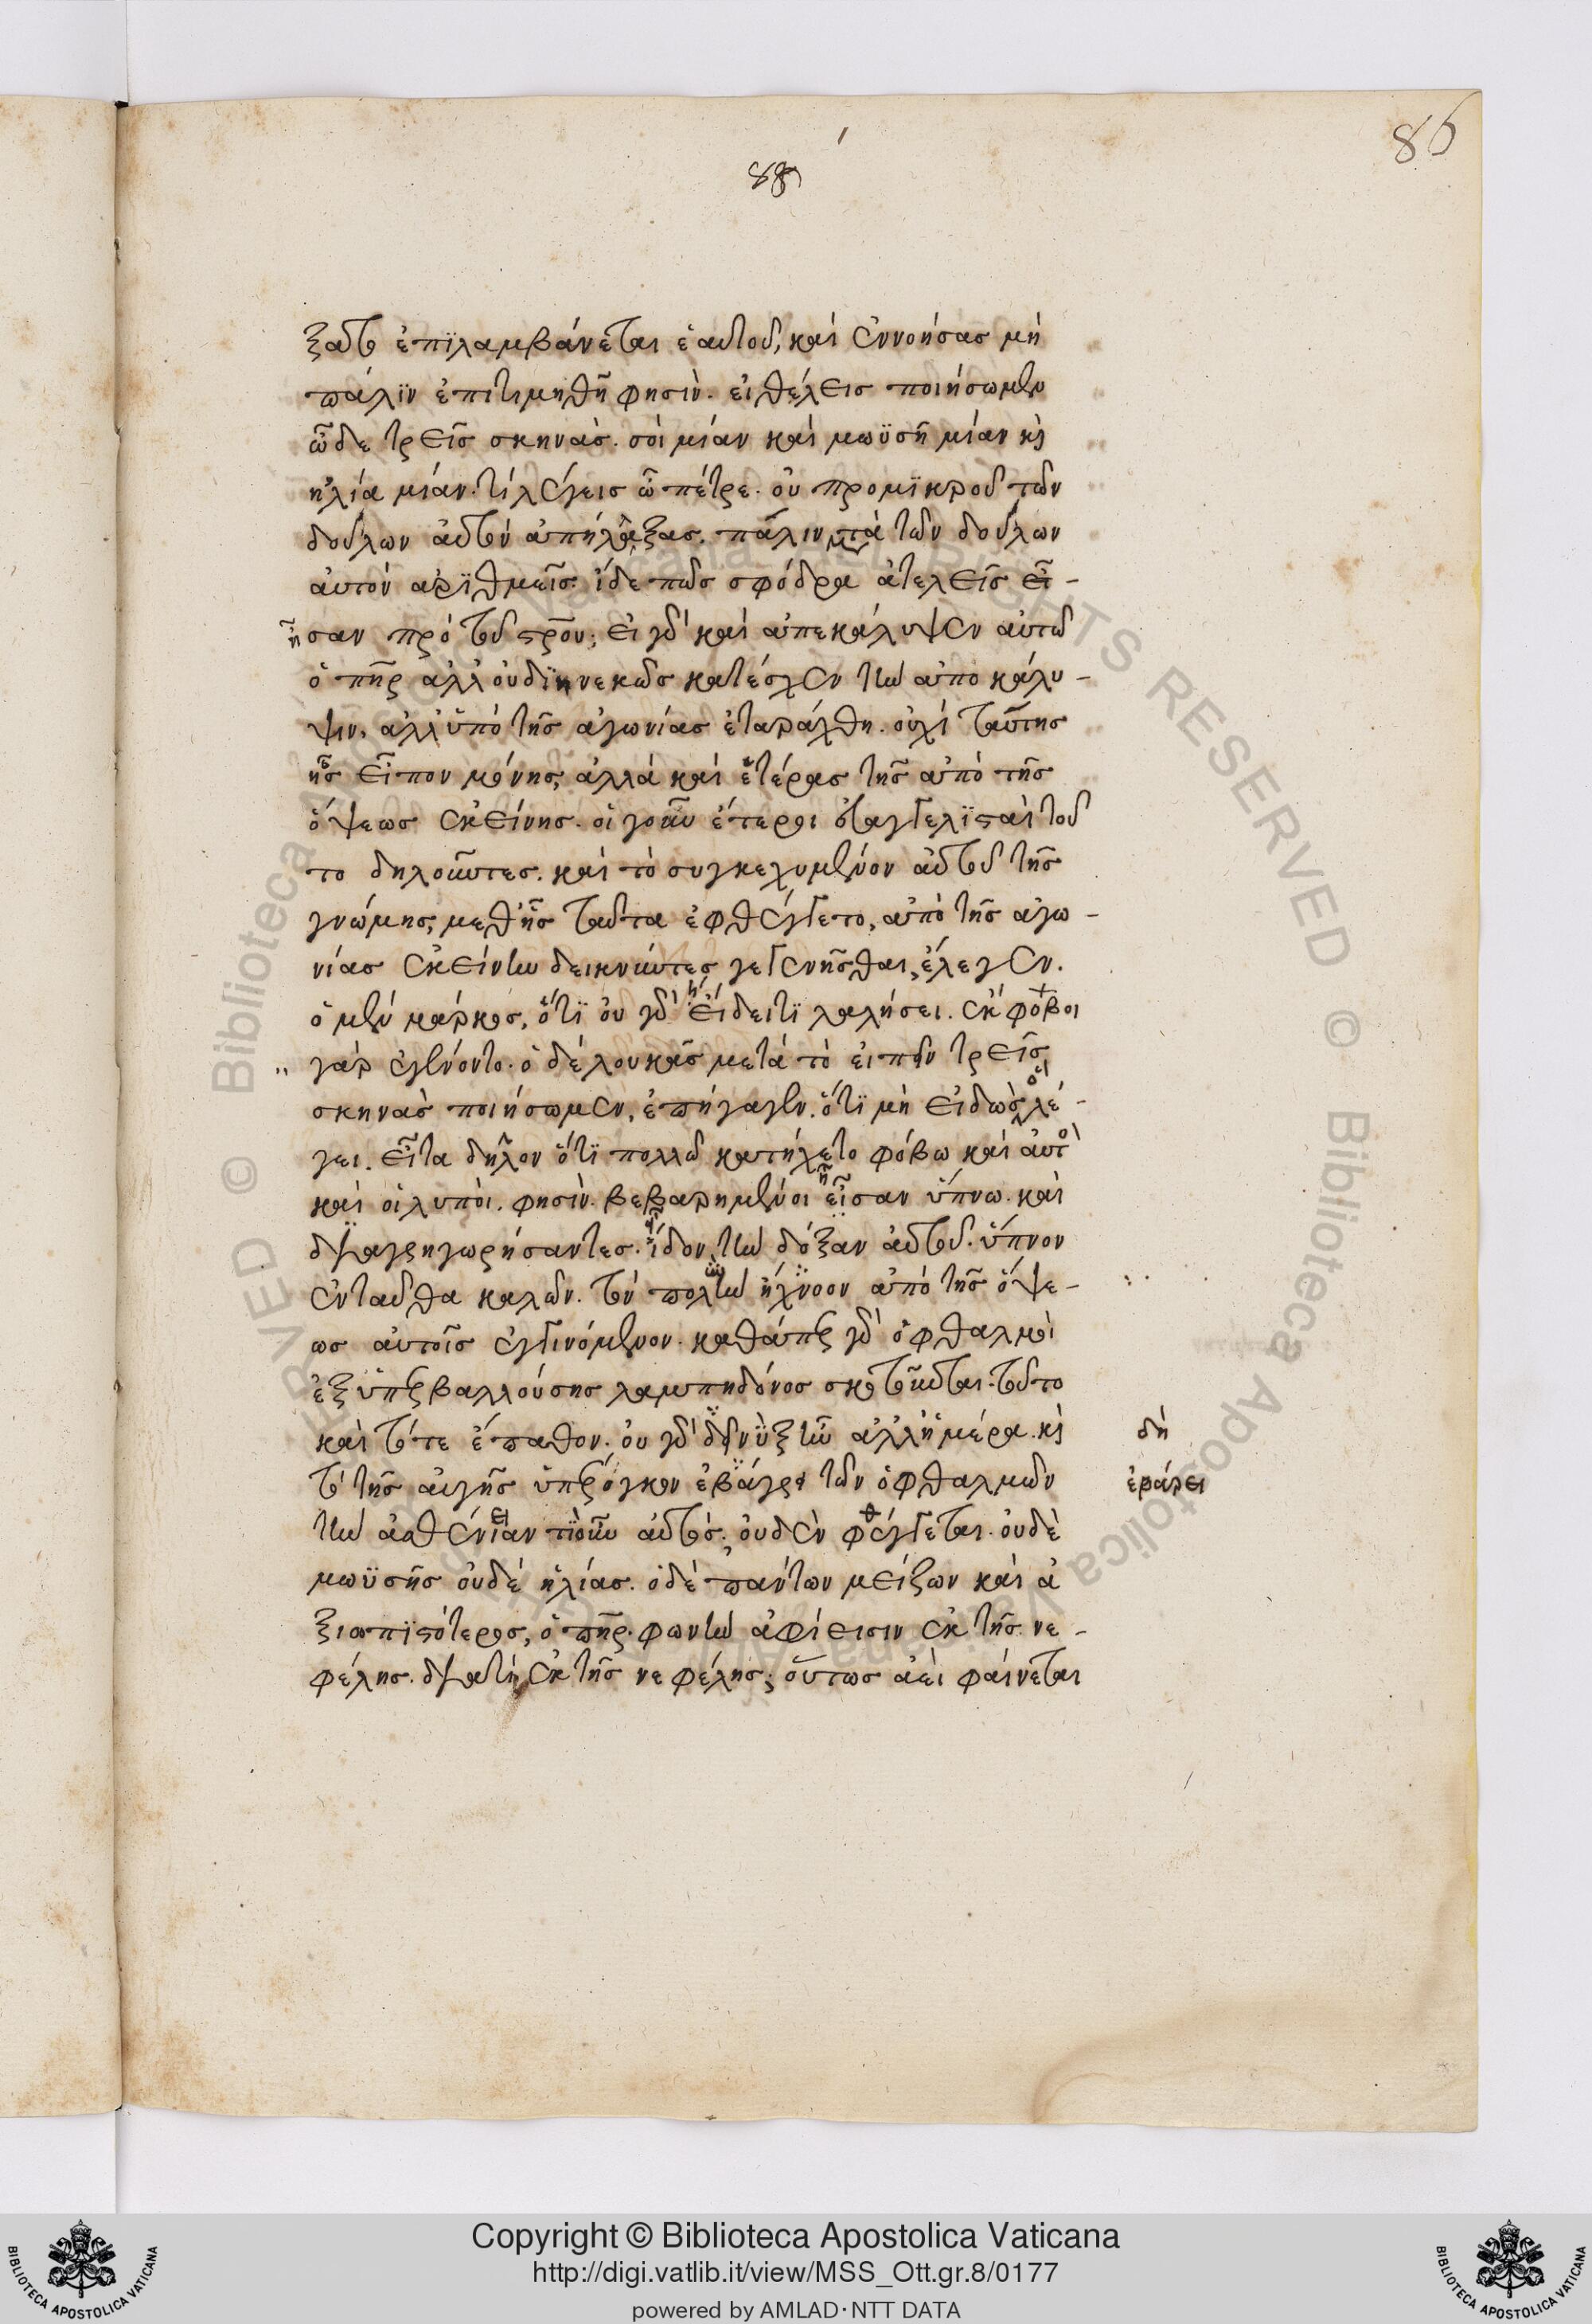 86
88
ξατο ἐπϊλαμβάνεται ἑαυτοῦ, καὶ ἐννοήσας μὴ
πάλϊν ἐπιτιμηθῆ φησὶν. εἰ θέλεις ποιήσωμεν
ὧδε τρεῖς σκηνάς. σοὶ μίαν καὶ μωϋσῆ μίαν κὶ
ηλία μίαν. τί λέγεις ὦ πέτρε. οὐ προμϊκροῦ τῶν
δούλων αὐτὸν ἀπήλλαξας. πάλιν μετὰ τῶν δούλων
αὐτὸν αρϊθμεῖς. ἴδε πῶς σφόδρα ἀτελεῖς εἶ-
ἦ σαν πρὸ τοῦ στρου; εἰ γὰρ καὶ ἀπεκάλυψεν αὐτῶ
ὁ πηρ ἀλλ οὐ δϊηνεκῶς κατέσχεν τὴν ἀποκάλυ-
ψιν. ἀλλ ὑπὸ τῆς ἀγωνίας ἐταράχθη. οὐχὶ ταύτης
ἧς εἶπον μόνης, ἀλλὰ καὶ ἑτέρας τῆς ἀπὸ τῆς
ὄψεως ἐκείνης. οἱ γοῦν ἕτεροι εὐαγγελϊσταὶ τοῦ
το δηλοῦντες. καὶ τὸ συγκεχυμένον αὐτοῦ τῆς
γνώμης, μεθ ἧς ταῦτα ἐφθέγγετο, ἀπὸ τῆς ἀγω-
νίας ἐκείνην δεικνύντες γεγενῆσθαι, ἔλεγεν.
ὁ μὲν μάρκος, ὅτϊ οὐ γὰρ εἴδει τϊ λαλήσει. ἔκφοβοι
γὰρ ἐγένοντο. ὁ δὲ λουκᾶς μετὰ τὸ εἰπεῖν τρεῖς
σκηνὰς ποιήσωμεν, ἐπήγαγεν. ὅτϊ μὴ εἰδὼς ὃ λέ-
γει. εἶτα δηλον ὅτϊ πολλῶ κατήχετο φόβω καὶ αὐτὸ
καὶ οἱ λυποὶ. φησὶν. βεβαρημένοι εἶσαν ὕπνω. καὶ
διαγρηγωρήσαντες. ἴδον τὴν δόξαν αὐτοῦ. ὕπνον
ἐνταῦθα καλῶν. τὸν πολὴν ἤχνοον ἀπὸ τῆς ὄψε-
ως αὐτοῖς ἐγγινόμενον. καθάπερ γὰρ ὀφθαλμοὶ
ἐξ ὑπερβαλλούσης λαμπηδόνος σκοτοῦνται. τοῦτο
καὶ τότε ἔπαθον. οὐ γὰρ δὴν νὺξ ἦν ἀλλ ἡμέρα. κὶ
δή
τὸ τῆς αὐγῆς ὑπέρογκον ἐβάρει τῶν ὀφθαλμῶν
ἐβάρει
τὴν ἀσθένειαν τϊ οὖν αὐτός. οὐδὲν φθέγγεται. οὐδὲ
μωϋσῆς οὐδὲ ἠλίας. ὁ δὲ πάντων μείζων καὶ ἀ
ξιοπϊστότερος, ὁ πηρ. φωνὴν ἀφίεισιν ἐκ τῆς νε-
φέλης. διατί ἐκ τῆς νεφέλης; οὕτως ἀεὶ φαίνεται
Copyright © Biblioteca Apostolica Vaticana
http://digi.vatlib.it/view/MSS_Ott.gr.8/0177
powered by AMLAD·NTT DATA